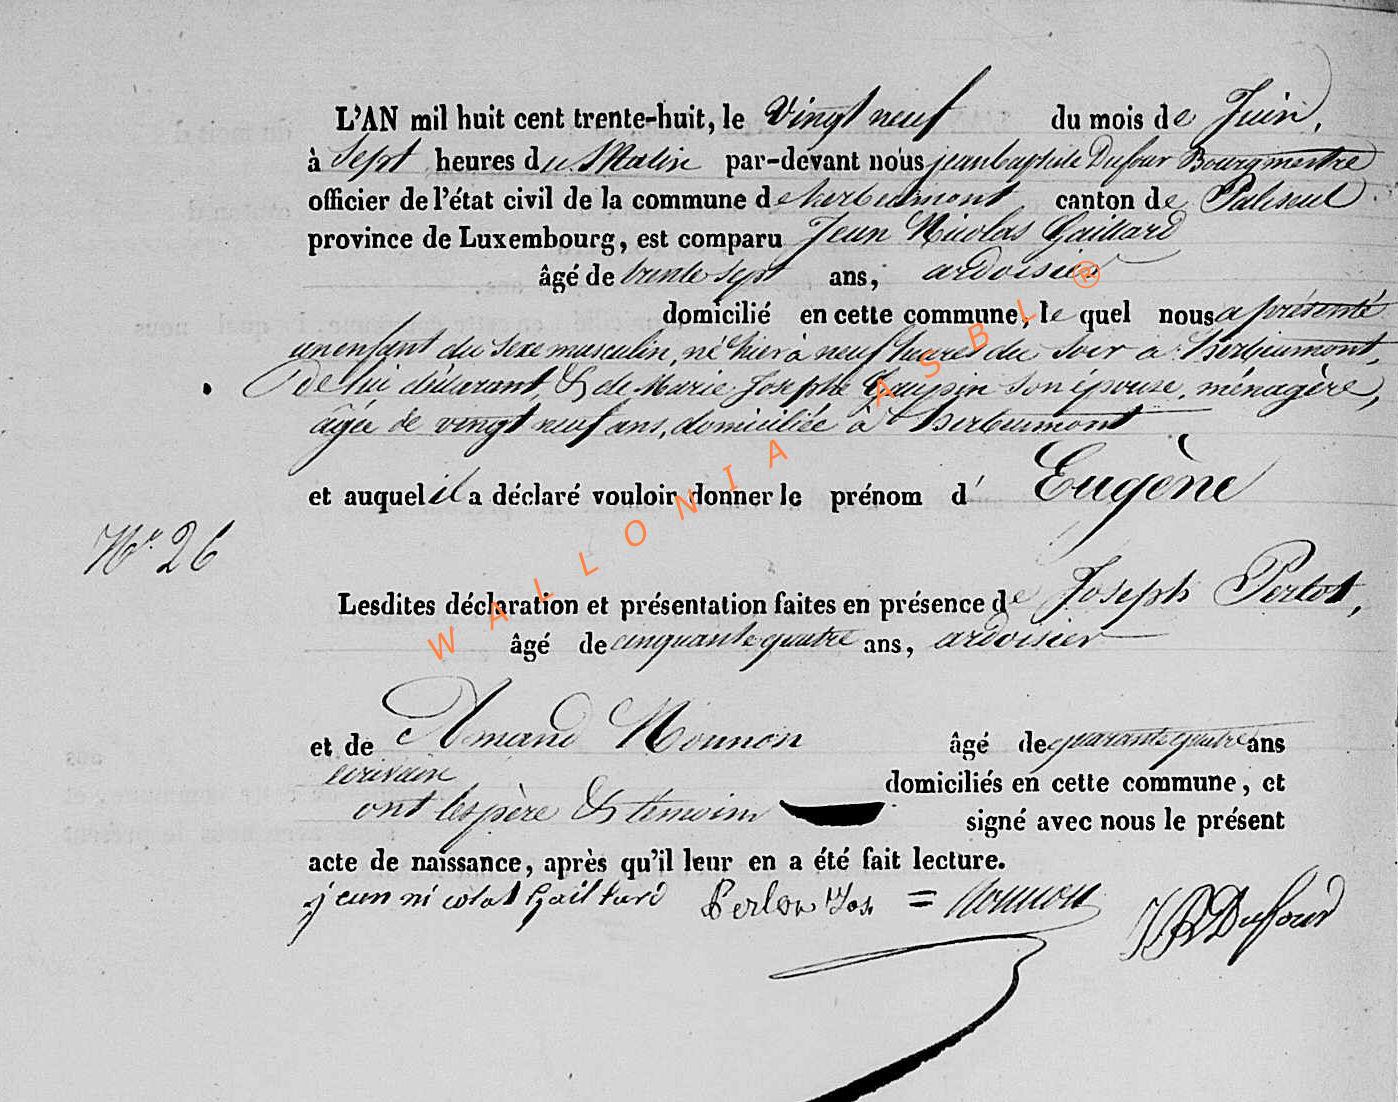 L'AN mil huit cent trente-huit, le Vingt neuf du mois de Juin,
à Sept heures du Matin par-devant nous jean baptiste Dufour Bourgmestre
officier de l'état civil de la commune de herbeumont canton de Paliseul
province de Luxembourg, est comparu Jean Nicolas Gaillard
âgé de trente sept ans, ardoisier
domicilié en cette commune, le quel nous a présenté
un enfant du sexe masculin, né hier à neuf heures du soir à herbeumont,
De lui déclarant, & de Marie Josephe son épouse, ménagère,
âgée de vingt neuf ans, domiciliée à herbeumont
et auquel il a déclaré vouloir donner le prénom d' Eugène
Nº 26
Lesdites déclaration et présentation faites en présence de Joseph Perlot,
âgé de cinquante quatre ans, ardoisier
et de Amand Nounon âgé de quarante quatre ans
écrivain domiciliés en cette commune, et
ont les père & temoins signé avec nous le présent
acte de naissance, après qu'il leur en a été fait lecture.
jean nicolas Gaillard Perlot Jos = Nounon JB Dufour
WALLONIA ASBL ®